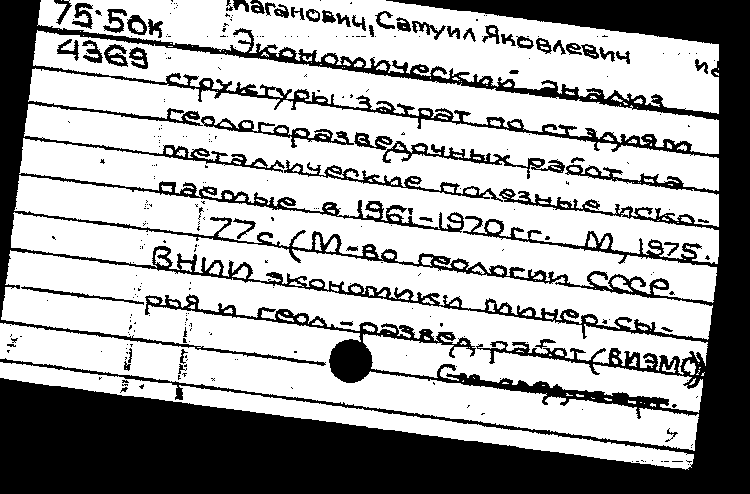 75·50к
Каганович, Сатуил Яковлевич
4369
Экономический анализ
структуры затрат по стадиям
геологоразведочных работ на
металлические полезные иско-
паемые в 1961-1970 гг. М., 1975.
77 с. (М-во геологии СССР.
ВНИИ экономики минер. сы-
рья и геол.-развед. работ (ВИЭМС))
См. след. карт.